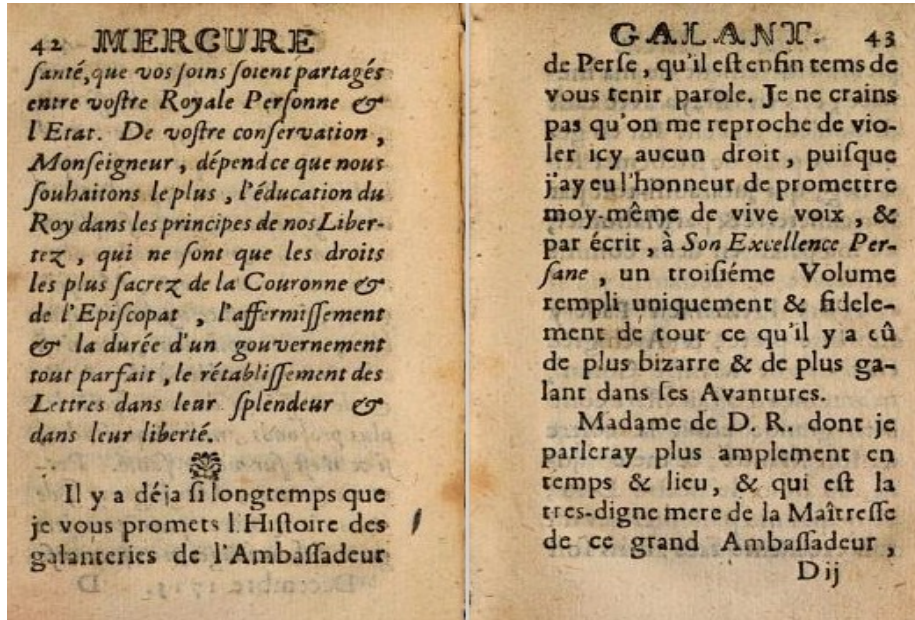 42 MERCURE
ſanté, que vos ſoins ſoient partagés
entre voſtre Royale Perſonne &
l'Etat. De voſtre conſervation,
Monſeigneur, dépend ce que nous
ſouhaitons le plus, l'éducation du
Roy dans les principes de nos Liber-
tez, qui ne ſont que les droits
les plus ſacrez de la Couronne &
de l'Epiſcopat, l'affermiſſement
& la durée d'un gouvernement
tout parfait, le rétabliſſement des
Lettres dans leur ſplendeur &
dans leur liberté.
Il y a déja ſi longtemps que
je vous promets l'Hiſtoire des
galanteries de l'Ambaſſadeur
GALANT. 43
de Perſe, qu'il eſt enfin tems de
vous tenir parole. Je ne crains
pas qu'on me reproche de vio-
ler icy aucun droit, puiſque
j'ay eu l'honneur de promettre
moy-même de vive voix, &
par écrit, à Son Excellence Per-
ſane, un troiſiéme Volume
rempli uniquement & fidele-
ment de tout ce qu'il y a eû
de plus bizarre & de plus ga-
lant dans ſes Avantures.
Madame de D. R. dont je
parleray plus amplement en
temps & lieu, & qui eſt la
tres-digne mere de la Maîtreſſe
de ce grand Ambaſſadeur,
D ij